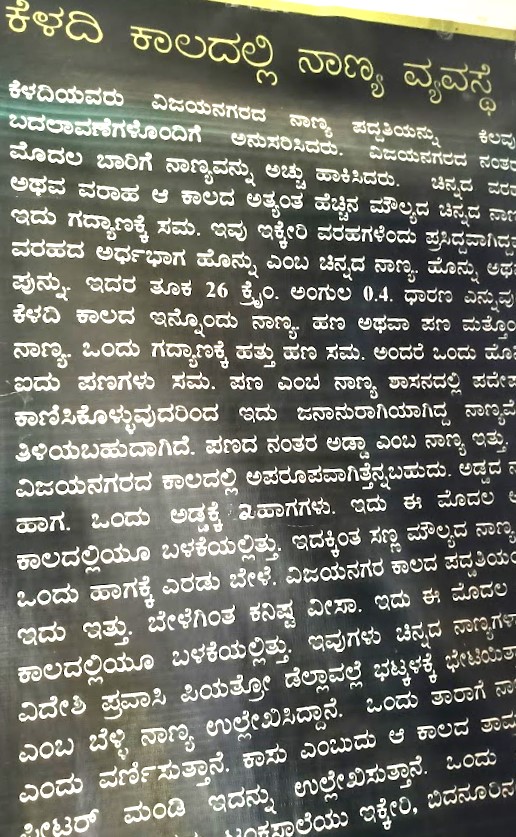 ಕೆಳದಿ ಕಾಲದಲ್ಲಿ ನಾಣ್ಯ ವ್ಯವಸ್ಥೆ
ಕೆಳದಿಯವರು ವಿಜಯನಗರದ ನಾಣ್ಯ ಪದ್ದತಿಯನ್ನು ಕೆಲವು
ಬದಲಾವಣೆಗಳೊಂದಿಗೆ ಅನುಸರಿಸಿದರು. ವಿಜಯನಗರದ ನಂತರ
ಮೊದಲ ಬಾರಿಗೆ ನಾಣ್ಯವನ್ನು ಅಚ್ಚು ಹಾಕಿಸಿದರು. ಚಿನ್ನದ
ಅಥವ ವರಾಹ ಆ ಕಾಲದ ಅತ್ಯಂತ ಹೆಚ್ಚಿನ ಮೌಲ್ಯದ ಚಿನ್ನದ
ಇದು ಗದ್ಯಾಣಕ್ಕೆ ಸಮ. ಇವು ಇಕ್ಕೇರಿ ವರಹಗಳೆಂದು
ವರಹದ ಅರ್ಧಭಾಗ ಹೊನ್ನು ಎಂಬ ಚಿನ್ನದ ನಾಣ್ಯ. ಹೊನ್ನು
ಪುನ್ನು. ಇದರ ತೂಕ 26 ಕ್ರೈಂ. ಅಂಗುಲ 0.4. ಧಾರಣ ಎನ್ನುವು
ಕೆಳದಿ ಕಾಲದ ಇನ್ನೊಂದು ನಾಣ್ಯ. ಹಣ ಅಥವಾ ಪಣ
ನಾಣ್ಯ. ಒಂದು ಗದ್ಯಾಣಕ್ಕೆ ಹತ್ತು ಹಣ ಸಮ. ಅಂದರೆ ಒಂದು
ಐದು ಪಣಗಳು ಸಮ. ಪಣ ಎಂಬ ನಾಣ್ಯ ಶಾಸನದಲ್ಲಿ
ಕಾಣಿಸಿಕೊಳ್ಳುವುದರಿಂದ ಇದು ಜನಾನುರಾಗಿಯಾಗಿದ್ದ
ತಿಳಿಯಬಹುದಾಗಿದೆ. ಪಣದ ನಂತರ ಅಡ್ಡಾ ಎಂಬ ನಾಣ್ಯ ಇತ್ತು.
ವಿಜಯನಗರದ ಕಾಲದಲ್ಲಿ ಅಪರೂಪವಾಗಿತ್ತೆನ್ನಬಹುದು. ಅಡ್ಡದ
ಹಾಗ. ಒಂದು ಅಡ್ಡಕ್ಕೆ 2ಹಾಗಗಳು. ಇದು ಈ ಮೊದಲ
ಕಾಲದಲ್ಲಿಯೂ ಬಳಕೆಯಲ್ಲಿತ್ತು. ಇದಕ್ಕಿಂತ ಸಣ್ಣ ಮೌಲ್ಯದ ನಾಣ್ಯ
ಒಂದು ಹಾಗಕ್ಕೆ ಎರಡು ಬೇಳೆ. ವಿಜಯನಗರ ಕಾಲದ
ಇದು ಇತ್ತು. ಬೇಳೆಗಿಂತ ಕನಿಷ್ಟ ವೀಸಾ. ಇದು ಈ ಮೊದಲ
ಕಾಲದಲ್ಲಿಯೂ ಬಳಕೆಯಲ್ಲಿತ್ತು. ಇವುಗಳು ಚಿನ್ನದ
ವಿದೇಶಿ ಪ್ರವಾಸಿ ಪಿಯತ್ರೋ ಡೆಲ್ಲಾವಲ್ಲೆ ಭಟ್ಕಳಕ್ಕೆ
ಎಂಬ ಬೆಳ್ಳಿ ನಾಣ್ಯ ಉಲ್ಲೇಖಿಸಿದ್ದಾನೆ. ಒಂದು ತಾರಾಗೆ
ಎಂದು ವರ್ಣಿಸುತ್ತಾನೆ. ಕಾಸು ಎಂಬುದು ಆ ಕಾಲದ
ಪೀಟರ್ ಮಂಡಿ ಇದನ್ನು ಉಲ್ಲೇಖಿಸುತ್ತಾನೆ. ಒಂದು
ಟಂಕಸಾಲೆಯು ಇಕ್ಕೇರಿ, ಬಿದನೂರಿನ